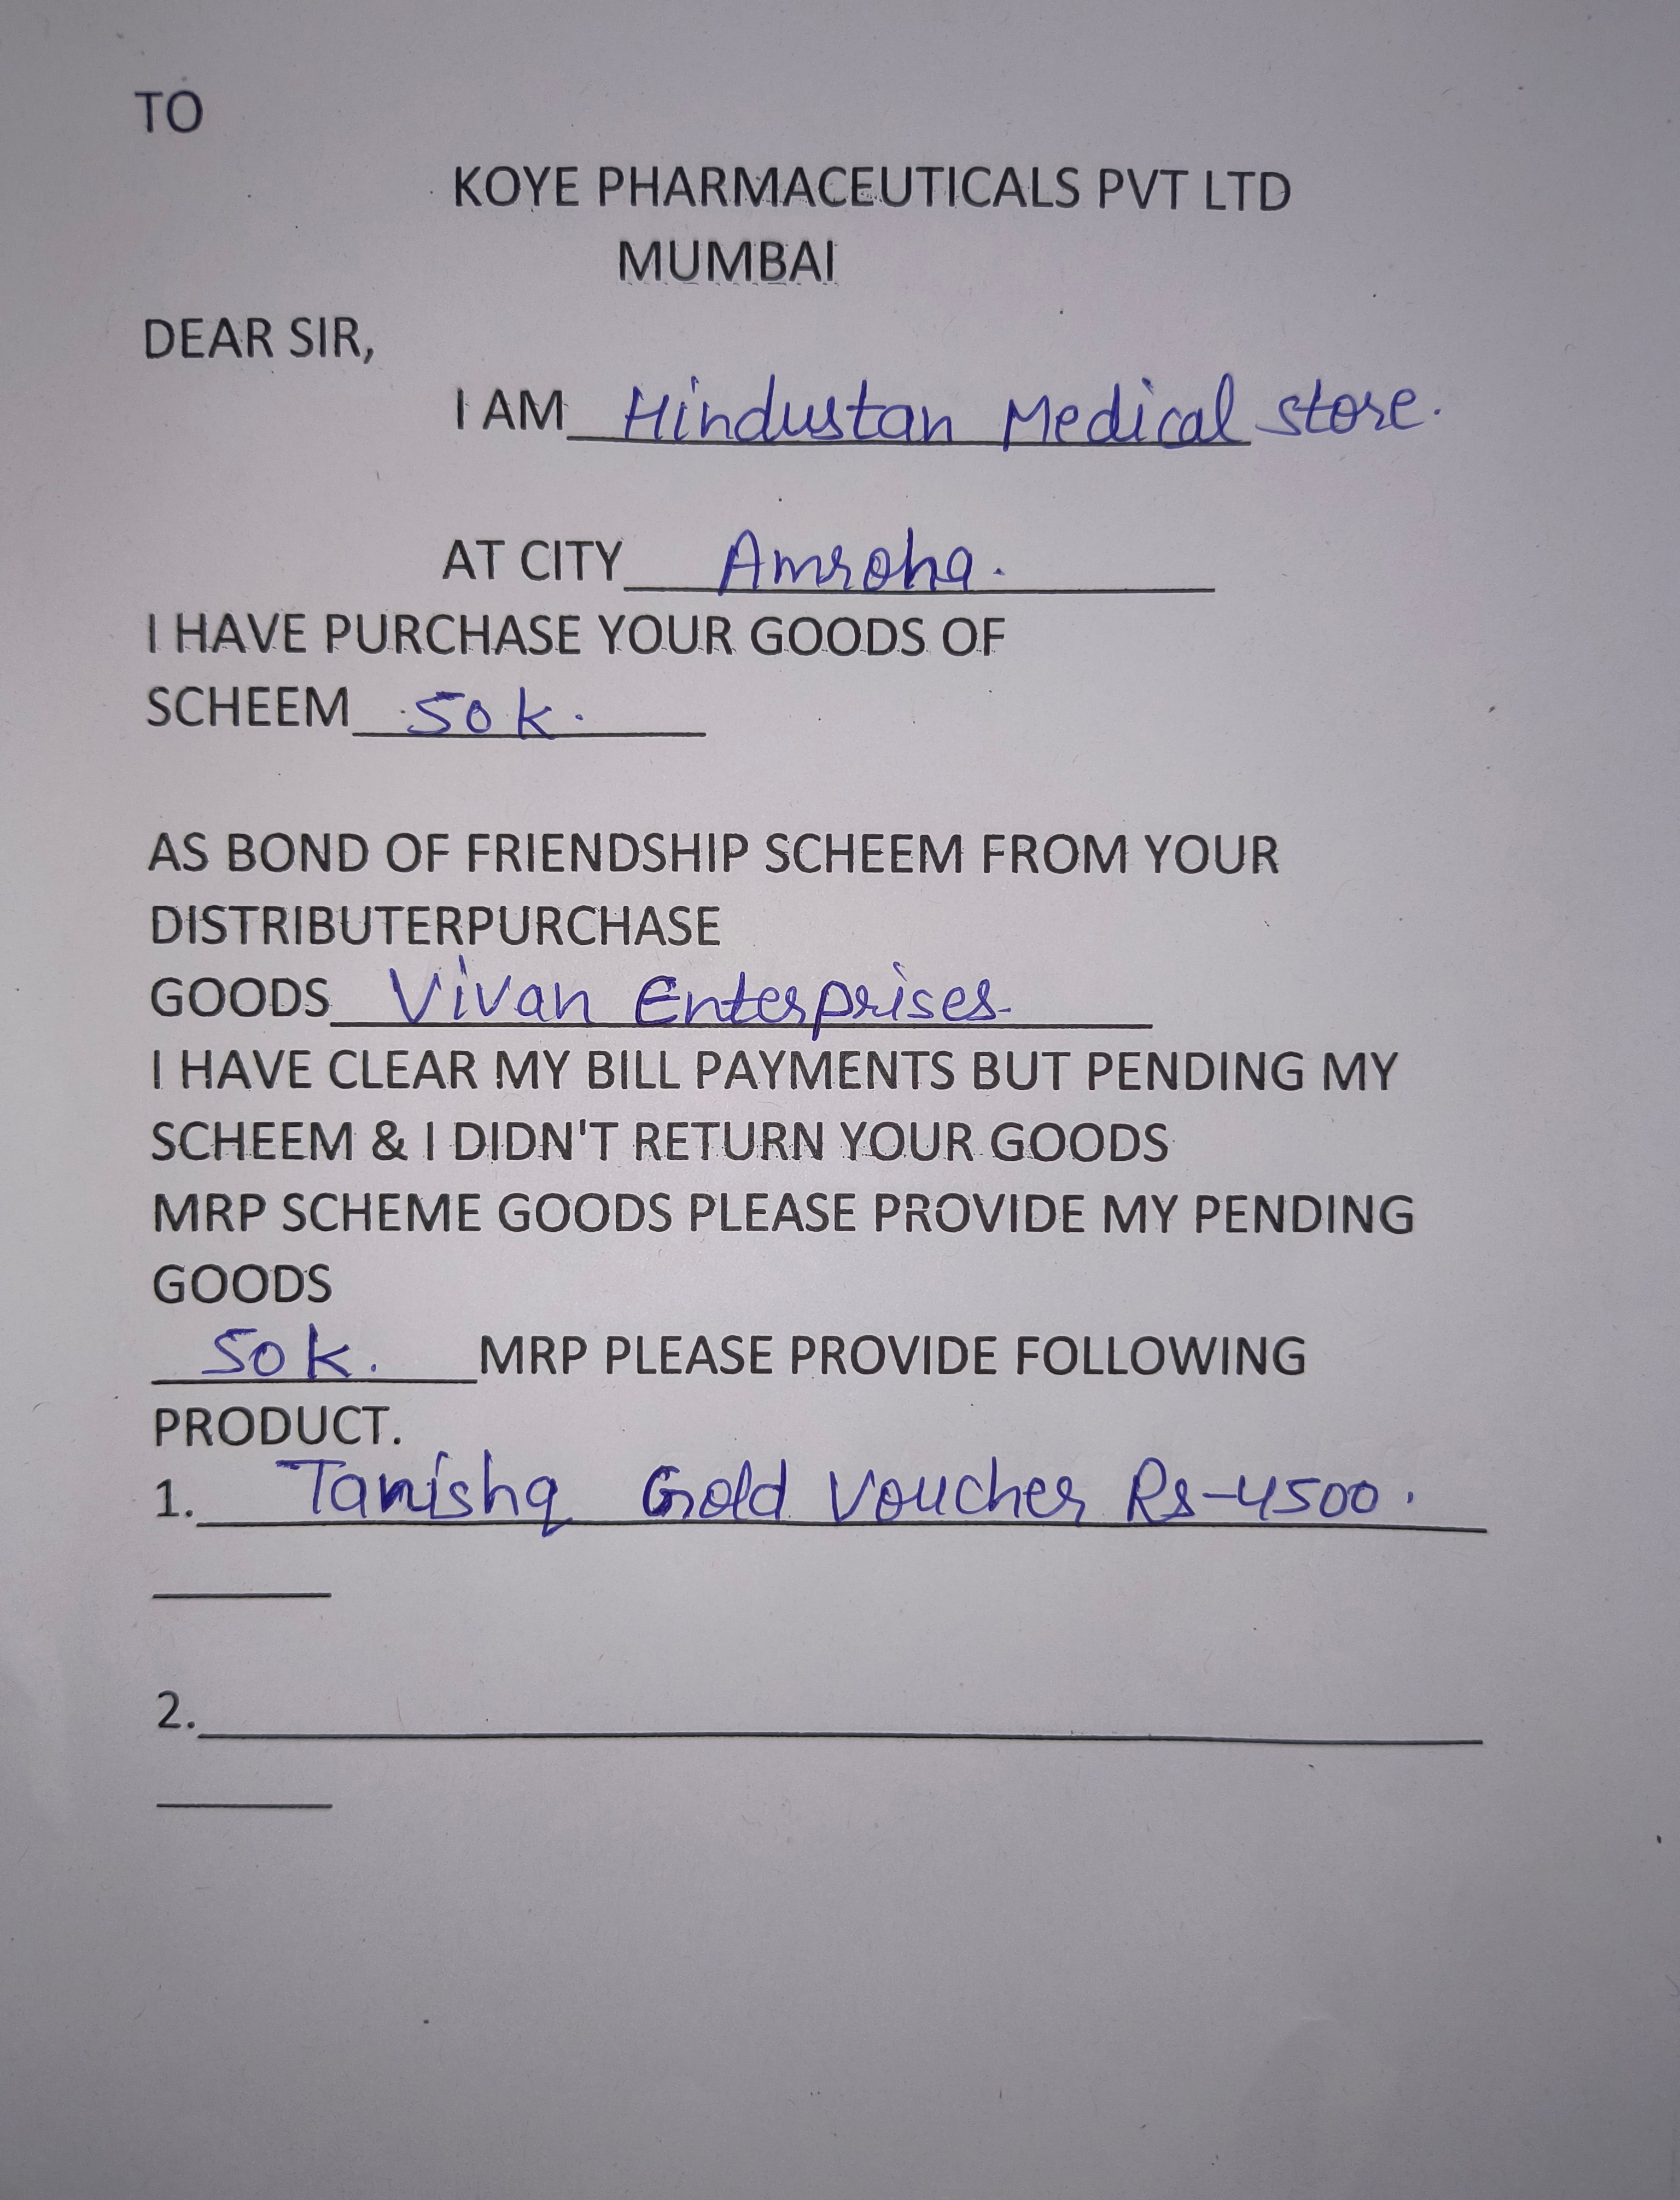 TO
KOYE PHARMACEUTICALS PVT LTD
MUMBAI
DEAR SIR,
I AM Hindustan Medical store.
AT CITY Amroha.
I HAVE PURCHASE YOUR GOODS OF
SCHEEM 50k.
AS BOND OF FRIENDSHIP SCHEEM FROM YOUR
DISTRIBUTERPURCHASE
GOODS Vivan Enterprises
I HAVE CLEAR MY BILL PAYMENTS BUT PENDING MY
SCHEEM & I DIDN'T RETURN YOUR GOODS
MRP SCHEME GOODS PLEASE PROVIDE MY PENDING
GOODS
50k. MRP PLEASE PROVIDE FOLLOWING
PRODUCT.
1. Tanishq Gold Voucher Rs-4500.
2.